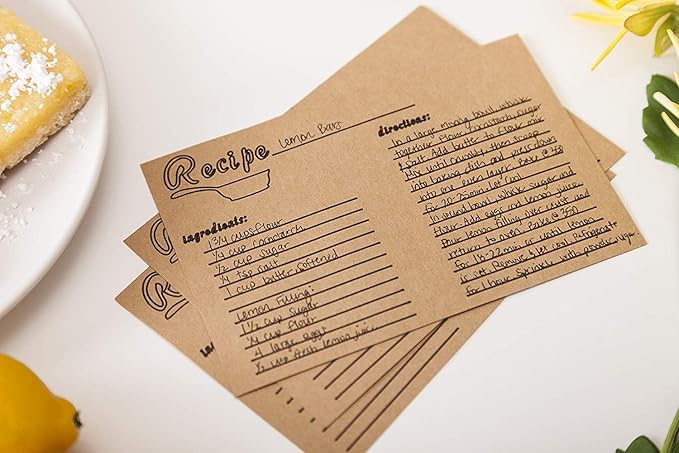 Recipe Lemon Bars
ingredients:
1 3/4 cups flour
1/4 cup cornstarch
1/2 cup sugar
1/4 tsp salt
1 cup butter softened
Lemon Filling:
1 1/2 cup sugar
1/4 cup flour
4 large eggs
1/2 cup fresh lemon juice
directions:
In a large mixing bowl whisk
together flour, cornstarch, sugar
& salt. Add butter to flour mix
Mix until crumbly then scoop
into baking dish and press down
into one even layer. Bake @ 350
for 20-25min. Let cool.
In bowl, whisk sugar and
flour. Add eggs and lemon juice.
Pour lemon filling over crust and
return to oven. Bake @ 350
for 18-22min or until lemon
is set. Remove & let cool. Refrigerate
for 1 hour. Sprinkle with powder sugar